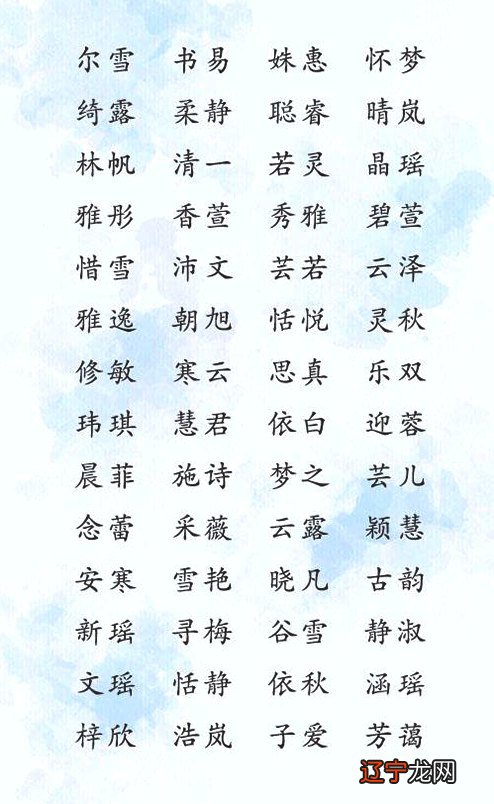 尔雪 书易 姝惠 怀梦
绮露 柔静 聪睿 晴岚
林帆 清一 若灵 晶瑶
雅彤 香萱 秀雅 碧萱
惜雪 沛文 芸若 云泽
雅逸 朝旭 恬悦 灵秋
修敏 寒云 思真 乐双
玮琪 慧君 依白 迎蓉
晨菲 施诗 梦之 芸儿
念蕾 采薇 云露 颖慧
安寒 雪艳 晓凡 古韵
新瑶 寻梅 谷雪 静淑
文瑶 恬静 依秋 涵瑶
梓欣 浩岚 子爱 芳蔼
辽宁龙网